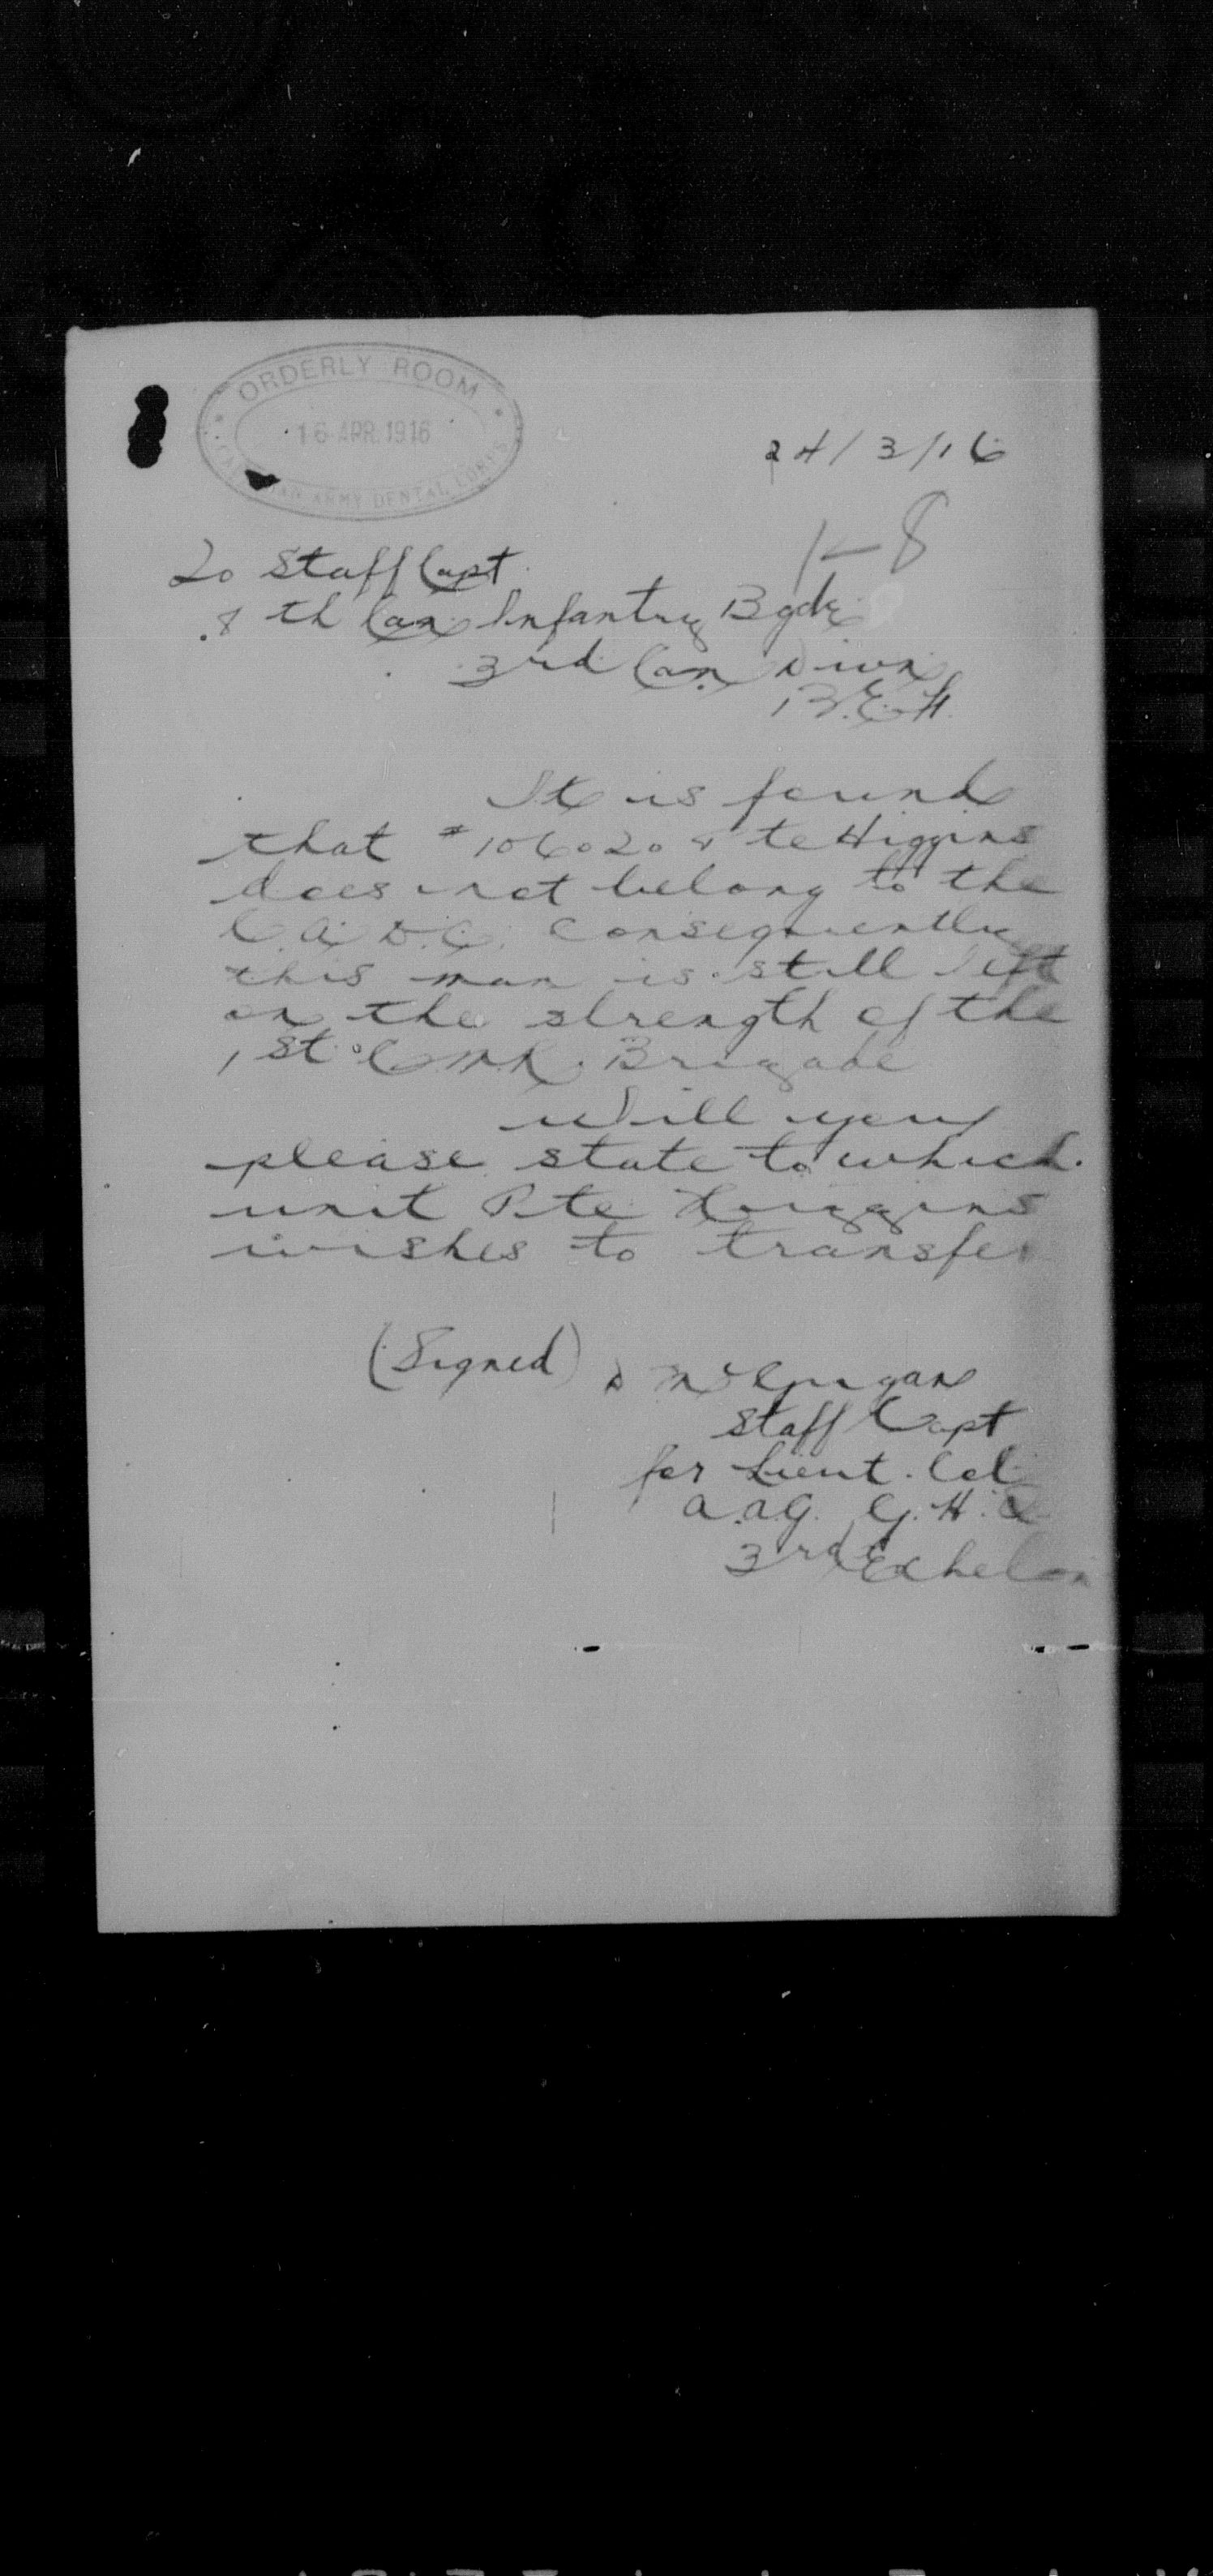 ORDERLY ROOM
16 APR. 1916
CANADIAN ARMY DENTAL CORPS
24/3/16
1-8
To Staff Capt.
8th Can Infantry Bgde
3rd Can Divn
B.E.F.
It is found
that #106020 Pte Higgins
does not belong to the
C.A.D.C. Consequently
this man is still left
on the strength of the
1st C M R. Brigade
Will you
please state to which
unit Pte Higgins
wishes to transfer
(Signed)
Staff Capt
for Lieut. Col
A.A.G. G.H.Q
3rd Echelon